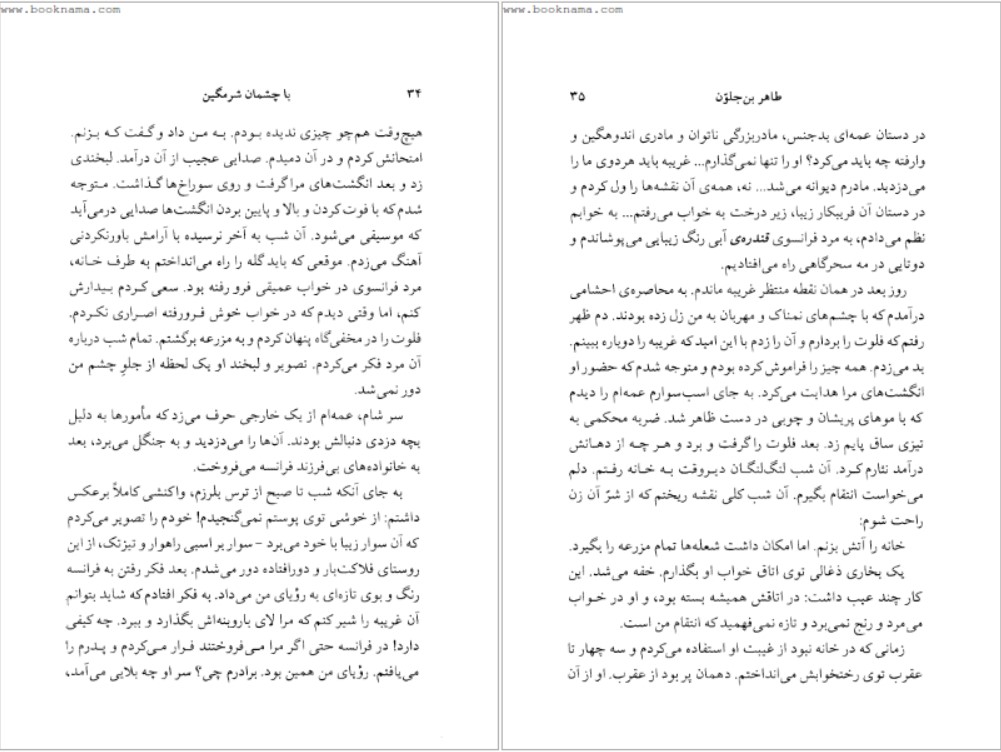 www.booknama.com
۳۴
با چشمان شرمگین
هیچ‌وقت هم‌چو چیزی ندیده بودم. به من داد و گفت که بزنم.
امتحانش کردم و در آن دمیدم. صدایی عجیب از آن درآمد. لبخندی
زد و بعد انگشت‌های مرا گرفت و روی سوراخ‌ها گذاشت. متوجه
شدم که با فوت کردن و بالا و پایین بردن انگشت‌ها صدایی درمی‌آید
که موسیقی می‌شود. آن شب به آخر نرسیده با آرامش باورنکردنی
آهنگ می‌زدم. موقعی که باید گله را راه می‌انداختم به طرف خانه،
مرد فرانسوی در خواب عمیقی فرو رفته بود. سعی کردم بیدارش
کنم، اما وقتی دیدم که در خواب خوش فرورفته اصراری نکردم.
فلوت را در مخفی‌گاه پنهان کردم و به مزرعه برگشتم. تمام شب درباره
آن مرد فکر می‌کردم. تصویر و لبخند او یک لحظه از جلوِ چشم من
دور نمی‌شد.
سر شام، عمه‌ام از یک خارجی حرف می‌زد که مأمورها به دلیل
بچه دزدی دنبالش بودند. آن‌ها را می‌دزدید و به جنگل می‌برد، بعد
به خانواده‌های بی‌فرزند فرانسه می‌فروخت.
به جای آنکه شب تا صبح از ترس بلرزم، واکنشی کاملاً برعکس
داشتم: از خوشی توی پوستم نمی‌گنجیدم! خودم را تصویر می‌کردم
که آن سوار زیبا با خود می‌برد – سوار بر اسبی راهوار و تیزتک، از این
روستای فلاکت‌بار و دورافتاده دور می‌شدم. بعد فکر رفتن به فرانسه
رنگ و بوی تازه‌ای به رؤیای من می‌داد. به فکر افتادم که شاید بتوانم
آن غریبه را شیر کنم که مرا لای باروبنه‌اش بگذارد و ببرد. چه کیفی
دارد! در فرانسه حتی اگر مرا می‌فروختند فرار می‌کردم و پدرم را
می‌یافتم. رؤیای من همین بود. برادرم چی؟ سر او چه بلایی می‌آمد،
www.booknama.com
طاهر بن‌جلوّن
۳۵
در دستان عمه‌ای بدجنس، مادربزرگی ناتوان و مادری اندوهگین و
وارفته چه باید می‌کرد؟ او را تنها نمی‌گذارم... غریبه باید هردوی ما را
می‌دزدید. مادرم دیوانه می‌شد... نه، همه‌ی آن نقشه‌ها را ول کردم و
در دستان آن فریبکار زیبا، زیر درخت به خواب می‌رفتم... به خوابم
نظم می‌دادم، به مرد فرانسوی قندره‌ی آبی رنگ زیبایی می‌پوشاندم و
دوتایی در مه سحرگاهی راه می‌افتادیم.
روز بعد در همان نقطه منتظر غریبه ماندم. به محاصره‌ی احشامی
درآمدم که با چشم‌های نمناک و مهربان به من زل زده بودند. دم ظهر
رفتم که فلوت را بردارم و آن را زدم با این امید که غریبه را دوباره ببینم.
بد می‌زدم. همه چیز را فراموش کرده بودم و متوجه شدم که حضور او
انگشت‌های مرا هدایت می‌کرد. به جای اسب‌سوارم عمه‌ام را دیدم
که با موهای پریشان و چوبی در دست ظاهر شد. ضربه محکمی به
تیزی ساق پایم زد. بعد فلوت را گرفت و برد و هر چه از دهانش
درآمد نثارم کرد. آن شب لنگ‌لنگان دیروقت به خانه رفتم. دلم
می‌خواست انتقام بگیرم. آن شب کلی نقشه ریختم که از شرّ آن زن
راحت شوم:
خانه را آتش بزنم. اما امکان داشت شعله‌ها تمام مزرعه را بگیرد.
یک بخاری ذغالی توی اتاق خواب او بگذارم. خفه می‌شد. این
کار چند عیب داشت: در اتاقش همیشه بسته بود، و او در خواب
می‌مرد و رنج نمی‌برد و تازه نمی‌فهمید که انتقام من است.
زمانی که در خانه نبود از غیبت او استفاده می‌کردم و سه چهار تا
عقرب توی رختخوابش می‌انداختم. دهمان پر بود از عقرب. او از آن